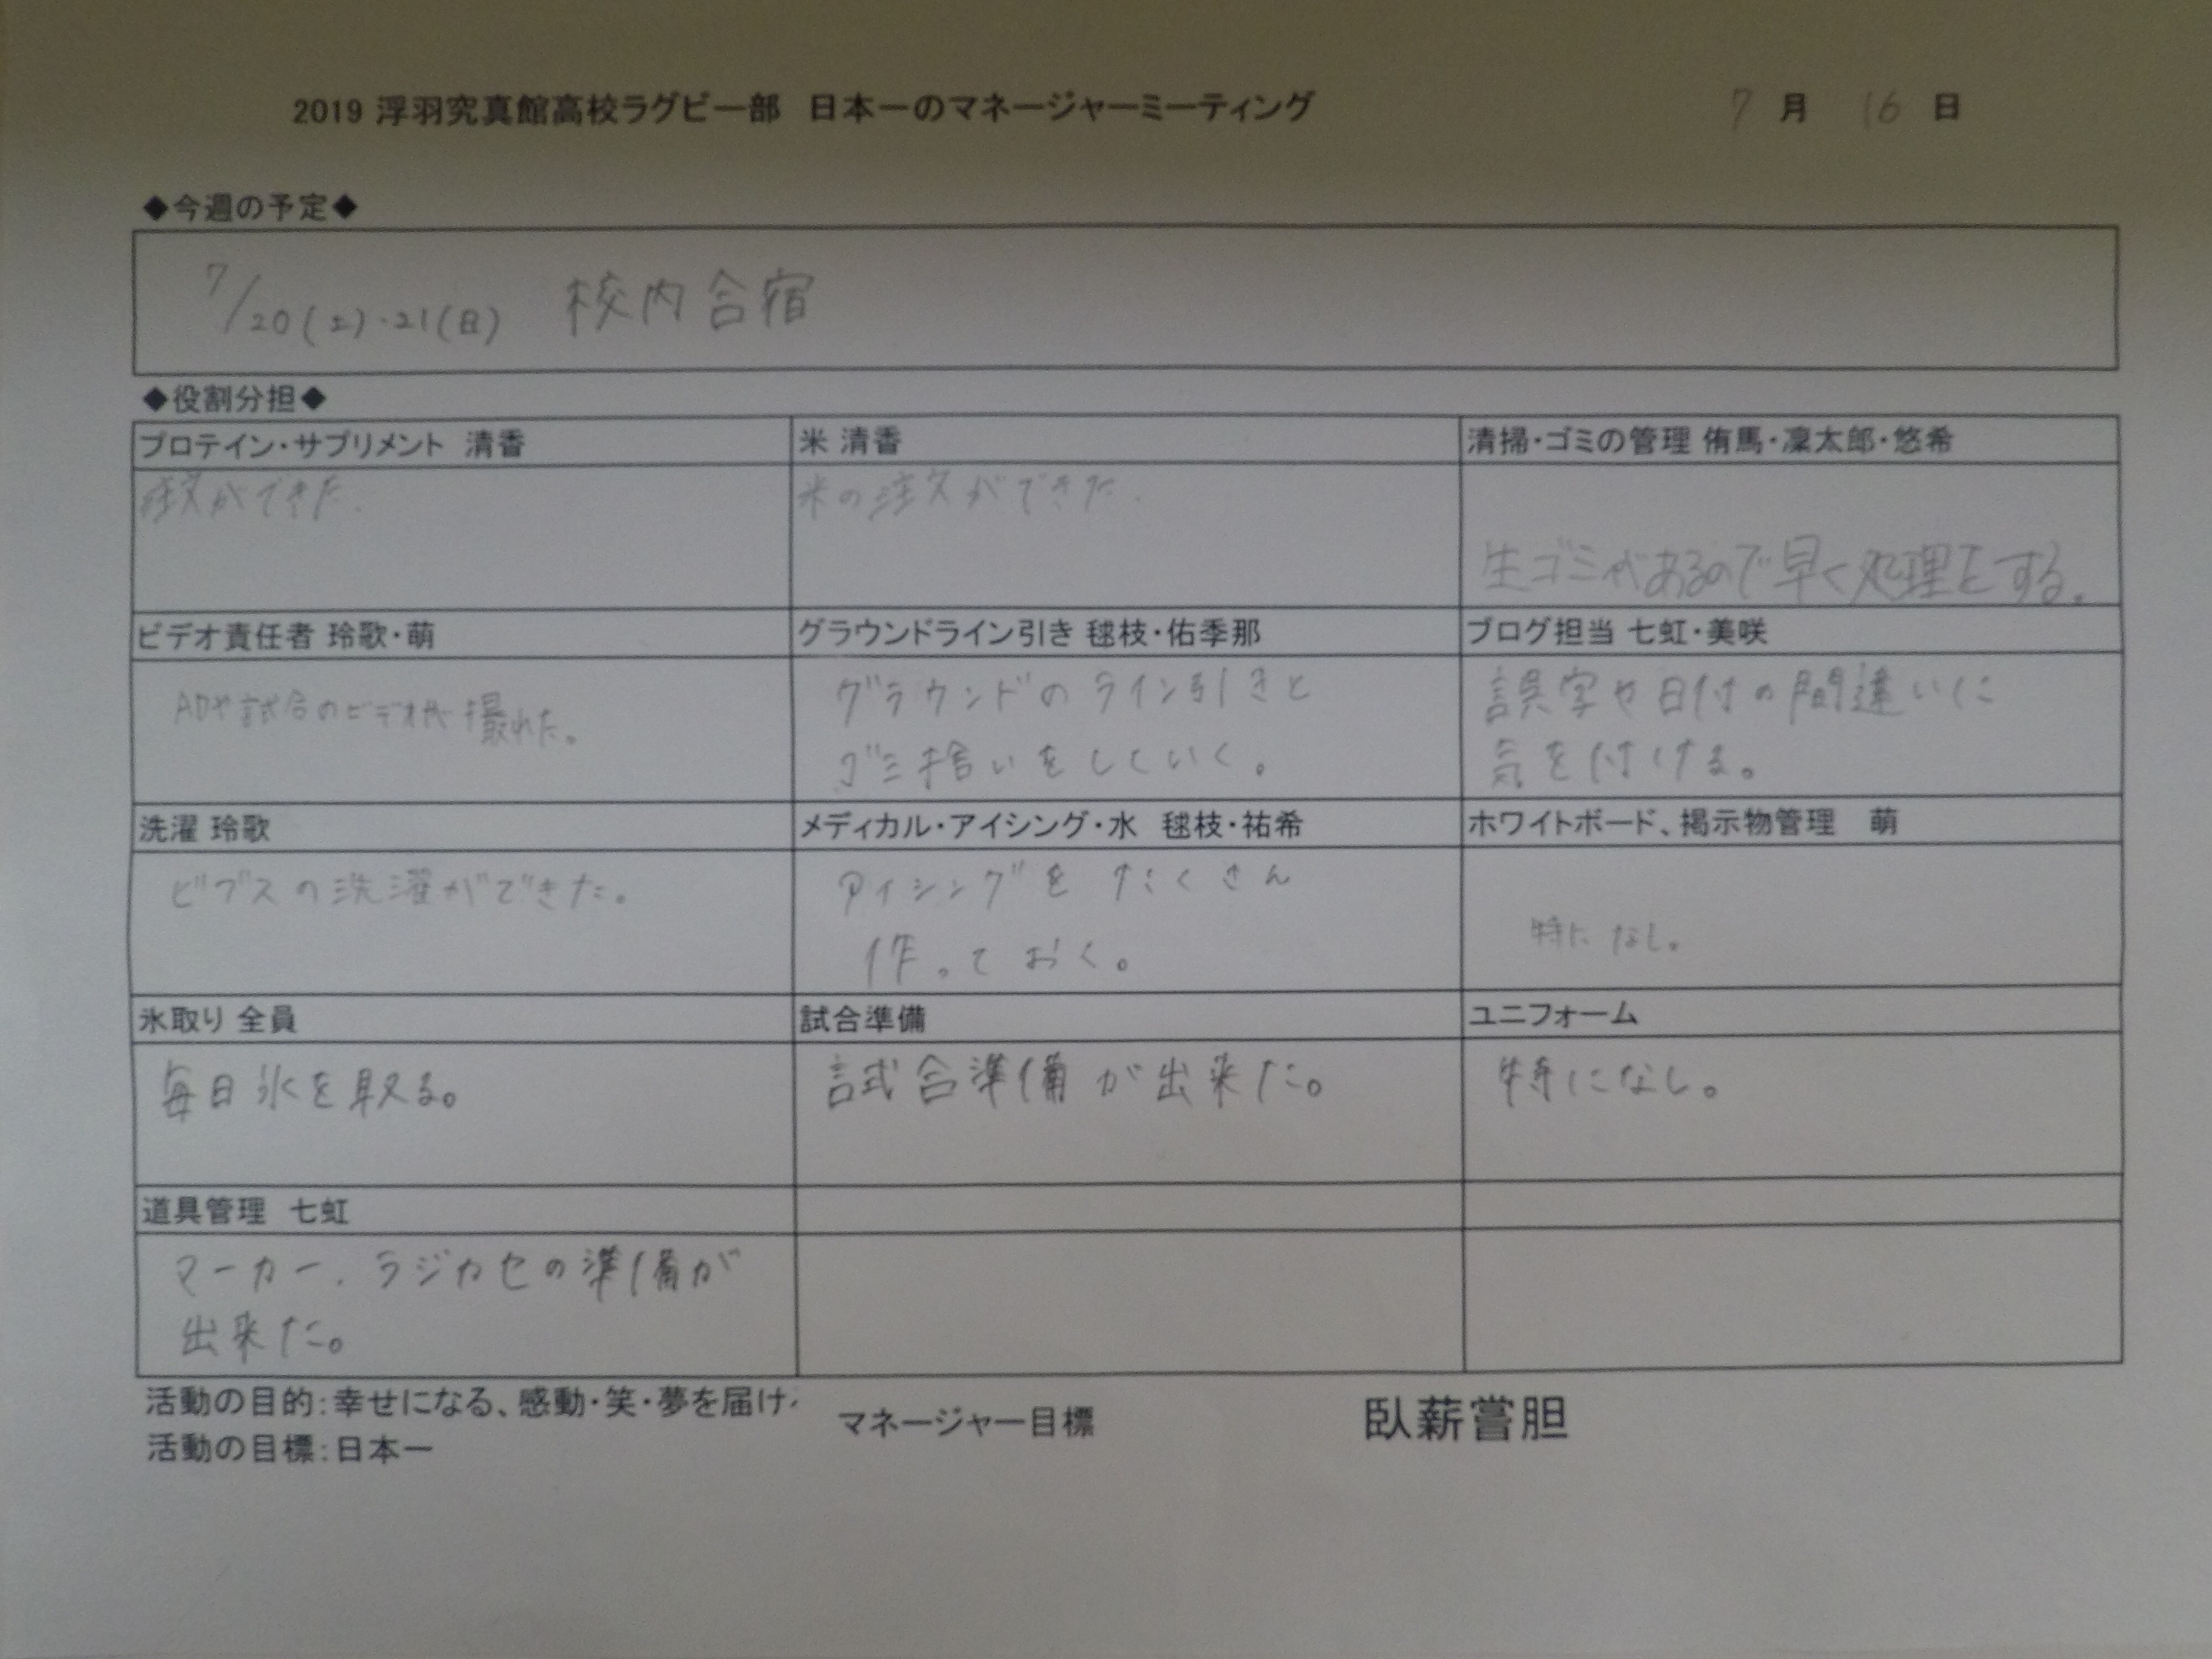 2019 浮羽究真館高校ラグビー部　日本一のマネージャーミーティング　7月　16日
◆今週の予定◆
7/20(土)・21(日)　校内合宿
◆役割分担◆
プロテイン・サプリメント　清香
米 清香
清掃・ゴミの管理 侑馬・凜太郎・悠希
注文ができた.
米の注文ができた.
生ゴミがあるので早く処理をする。
ビデオ責任者 玲歌・萌
グラウンドライン引き 毬枝・佑季那
ブログ担当 七虹・美咲
ADや試合のビデオが撮れた。
グラウンドのライン引きと
ゴミ拾いをしていく。
誤字や日付の間違いに
気を付ける。
洗濯 玲歌
メディカル・アイシング・水　毬枝・祐希
ホワイトボード、掲示物管理　萌
ビブスの洗濯ができた。
アイシングを たくさん
作っておく。
特に なし。
氷取り 全員
試合準備
ユニフォーム
毎日氷を取る。
試合準備が出来た。
特になし。
道具管理　七虹
マーカー、ラジカセの準備が
出来た。
活動の目的：幸せになる、感動・笑・夢を届け
活動の目標：日本一
マネージャー目標
臥薪嘗胆